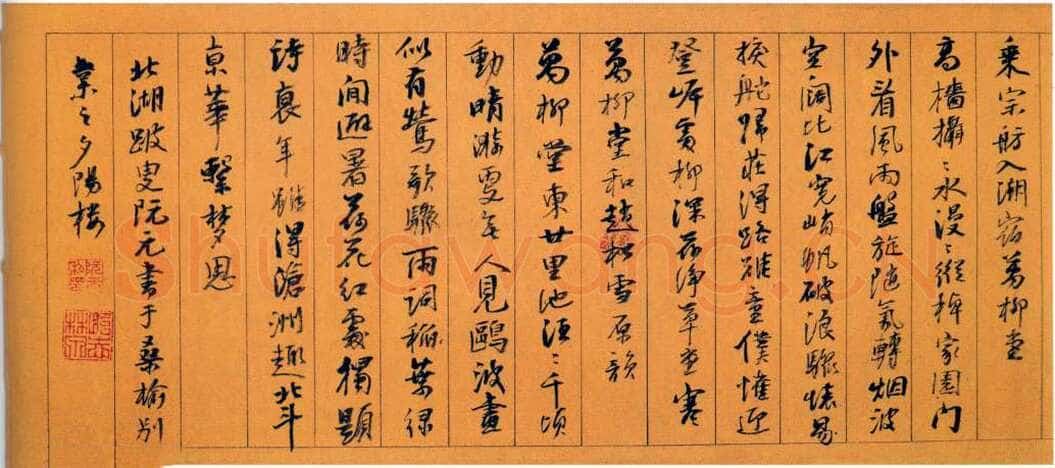 乘宗舫入湖宿萬柳堂
高檣攝々水漫々縱棹家園門
外看風雨盤旋隨氣轉烟波
空闊比江寬峭帆破浪驟懷易
捩舵歸莊得路難童僕慣迎
登岸處柳深荷淨草堂寒
萬柳堂和趙松雪原韻
萬柳堂東廿里池汪々千頃
動晴漪更無人見鷗波畫
似有鶯歌驟雨詞稻葉綠
時間避暑荷花紅處獨題
詩衰年雖得滄洲趣北斗
京華繫夢思
北湖跛叟阮元書于桑榆別
業之夕陽樓
Shufawang.CN